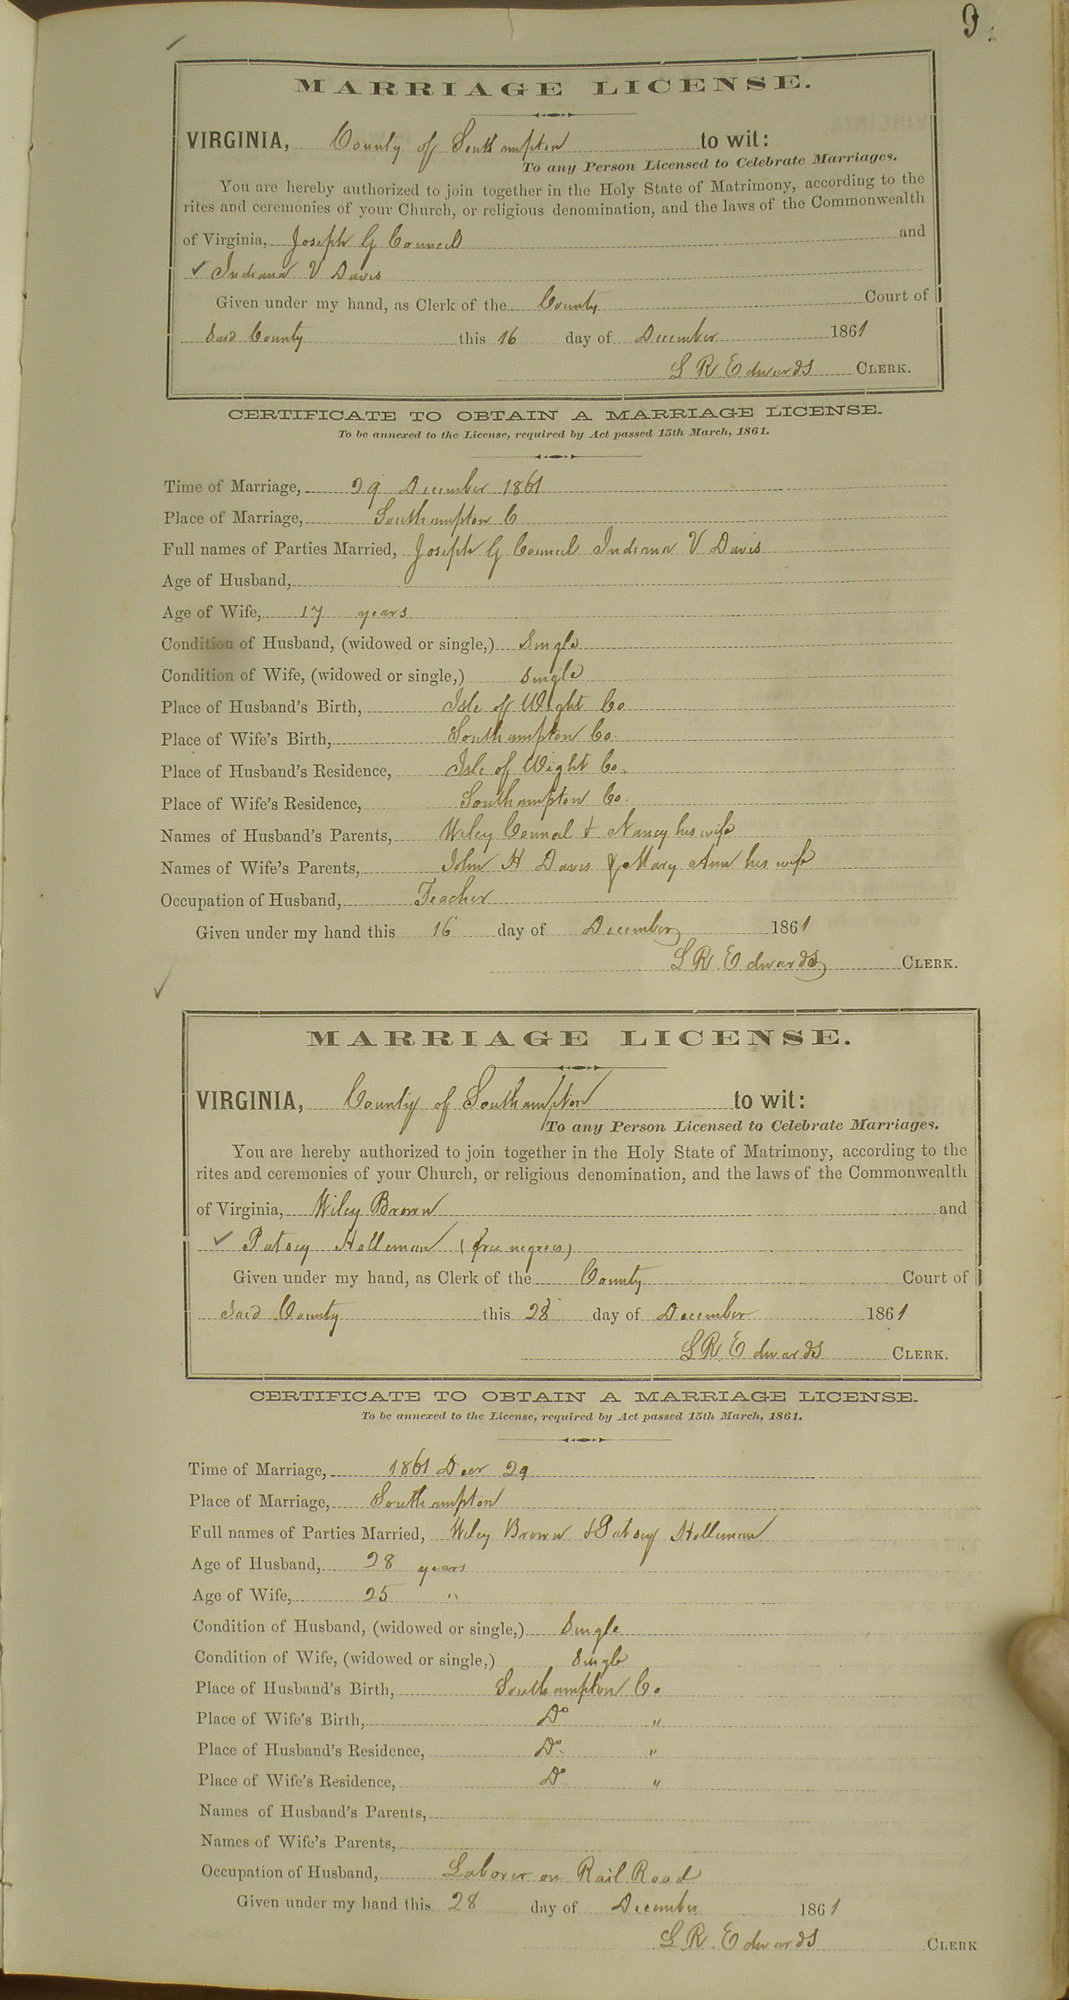 9
MARRIAGE LICENSE.
VIRGINIA, County of Southampton to wit:
To any Person Licensed to Celebrate Marriages.
You are hereby authorized to join together in the Holy State of Matrimony, according to the
rites and ceremonies of your Church, or religious denomination, and the laws of the Commonwealth
of Virginia, Joseph G Council and
Indiana V Davis
Given under my hand, as Clerk of the County Court of
Said County this 16 day of December 1861
L R Edwards CLERK.
CERTIFICATE TO OBTAIN A MARRIAGE LICENSE.
To be annexed to the License, required by Act passed 15th March, 1861.
Time of Marriage, 29 December 1861
Place of Marriage, Southampton C
Full names of Parties Married, Joseph G Council Indiana V Davis
Age of Husband,
Age of Wife, 17 years
Condition of Husband, (widowed or single,) Single
Condition of Wife, (widowed or single,) Single
Place of Husband's Birth, Isle of Wight Co
Place of Wife's Birth, Southampton Co.
Place of Husband's Residence, Isle of Wight Co.
Place of Wife's Residence, Southampton Co.
Names of Husband's Parents, Wiley Councal & Nancy his wife
Names of Wife's Parents, John H Davis & Mary Ann his wife
Occupation of Husband, Teacher
Given under my hand this 16 day of December 1861
L R. Edwards CLERK.
MARRIAGE LICENSE.
VIRGINIA, County of Southampton to wit:
To any Person Licensed to Celebrate Marriages.
You are hereby authorized to join together in the Holy State of Matrimony, according to the
rites and ceremonies of your Church, or religious denomination, and the laws of the Commonwealth
of Virginia, Wiley Brown and
Patsey Holleman (free negroes)
Given under my hand, as Clerk of the County Court of
Said County this 28 day of December 1861
L R. Edwards CLERK.
CERTIFICATE TO OBTAIN A MARRIAGE LICENSE.
To be annexed to the License, required by Act passed 15th March, 1861.
Time of Marriage, 1861 Decr 29
Place of Marriage, Southampton
Full names of Parties Married, Wiley Brown & Patsey Holleman
Age of Husband, 28 years
Age of Wife, 25 "
Condition of Husband, (widowed or single,) Single
Condition of Wife, (widowed or single,) Single
Place of Husband's Birth, Southampton Co
Place of Wife's Birth, Do "
Place of Husband's Residence, Do. "
Place of Wife's Residence, Do "
Names of Husband's Parents,
Names of Wife's Parents,
Occupation of Husband, Laborer on Rail Road
Given under my hand this 28 day of December 1861
L R. Edwards CLERK